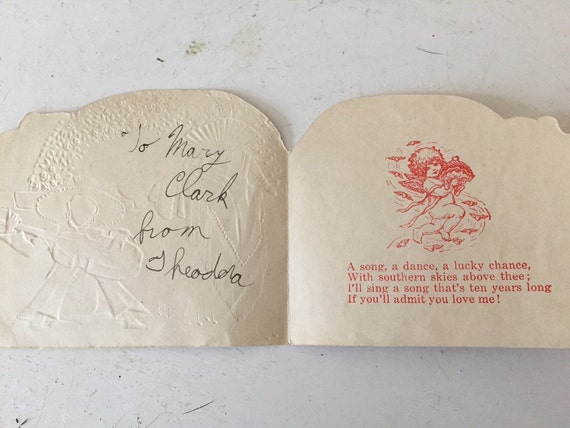 To Mary
Clark
from
Theodora
A song, a dance, a lucky chance,
With southern skies above thee;
I'll sing a song that's ten years long
If you'll admit you love me!